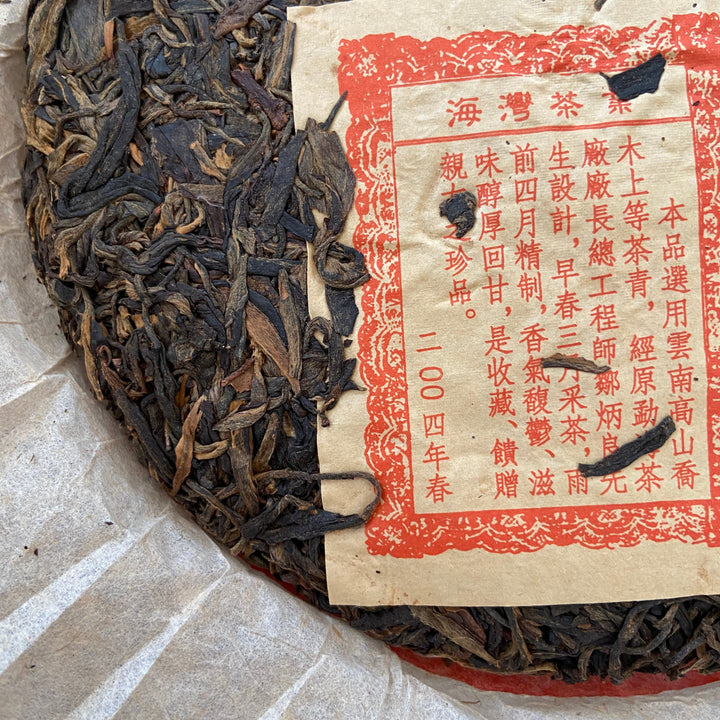 海灣茶業
本品選用雲南高山喬
木上等茶青，經原勐海茶
廠廠長總工程師鄒炳良先
生設計，早春三月采茶，雨
前四月精制，香氣馥鬱、滋
味醇厚回甘，是收藏、饋贈
親珍品。
二00四年春